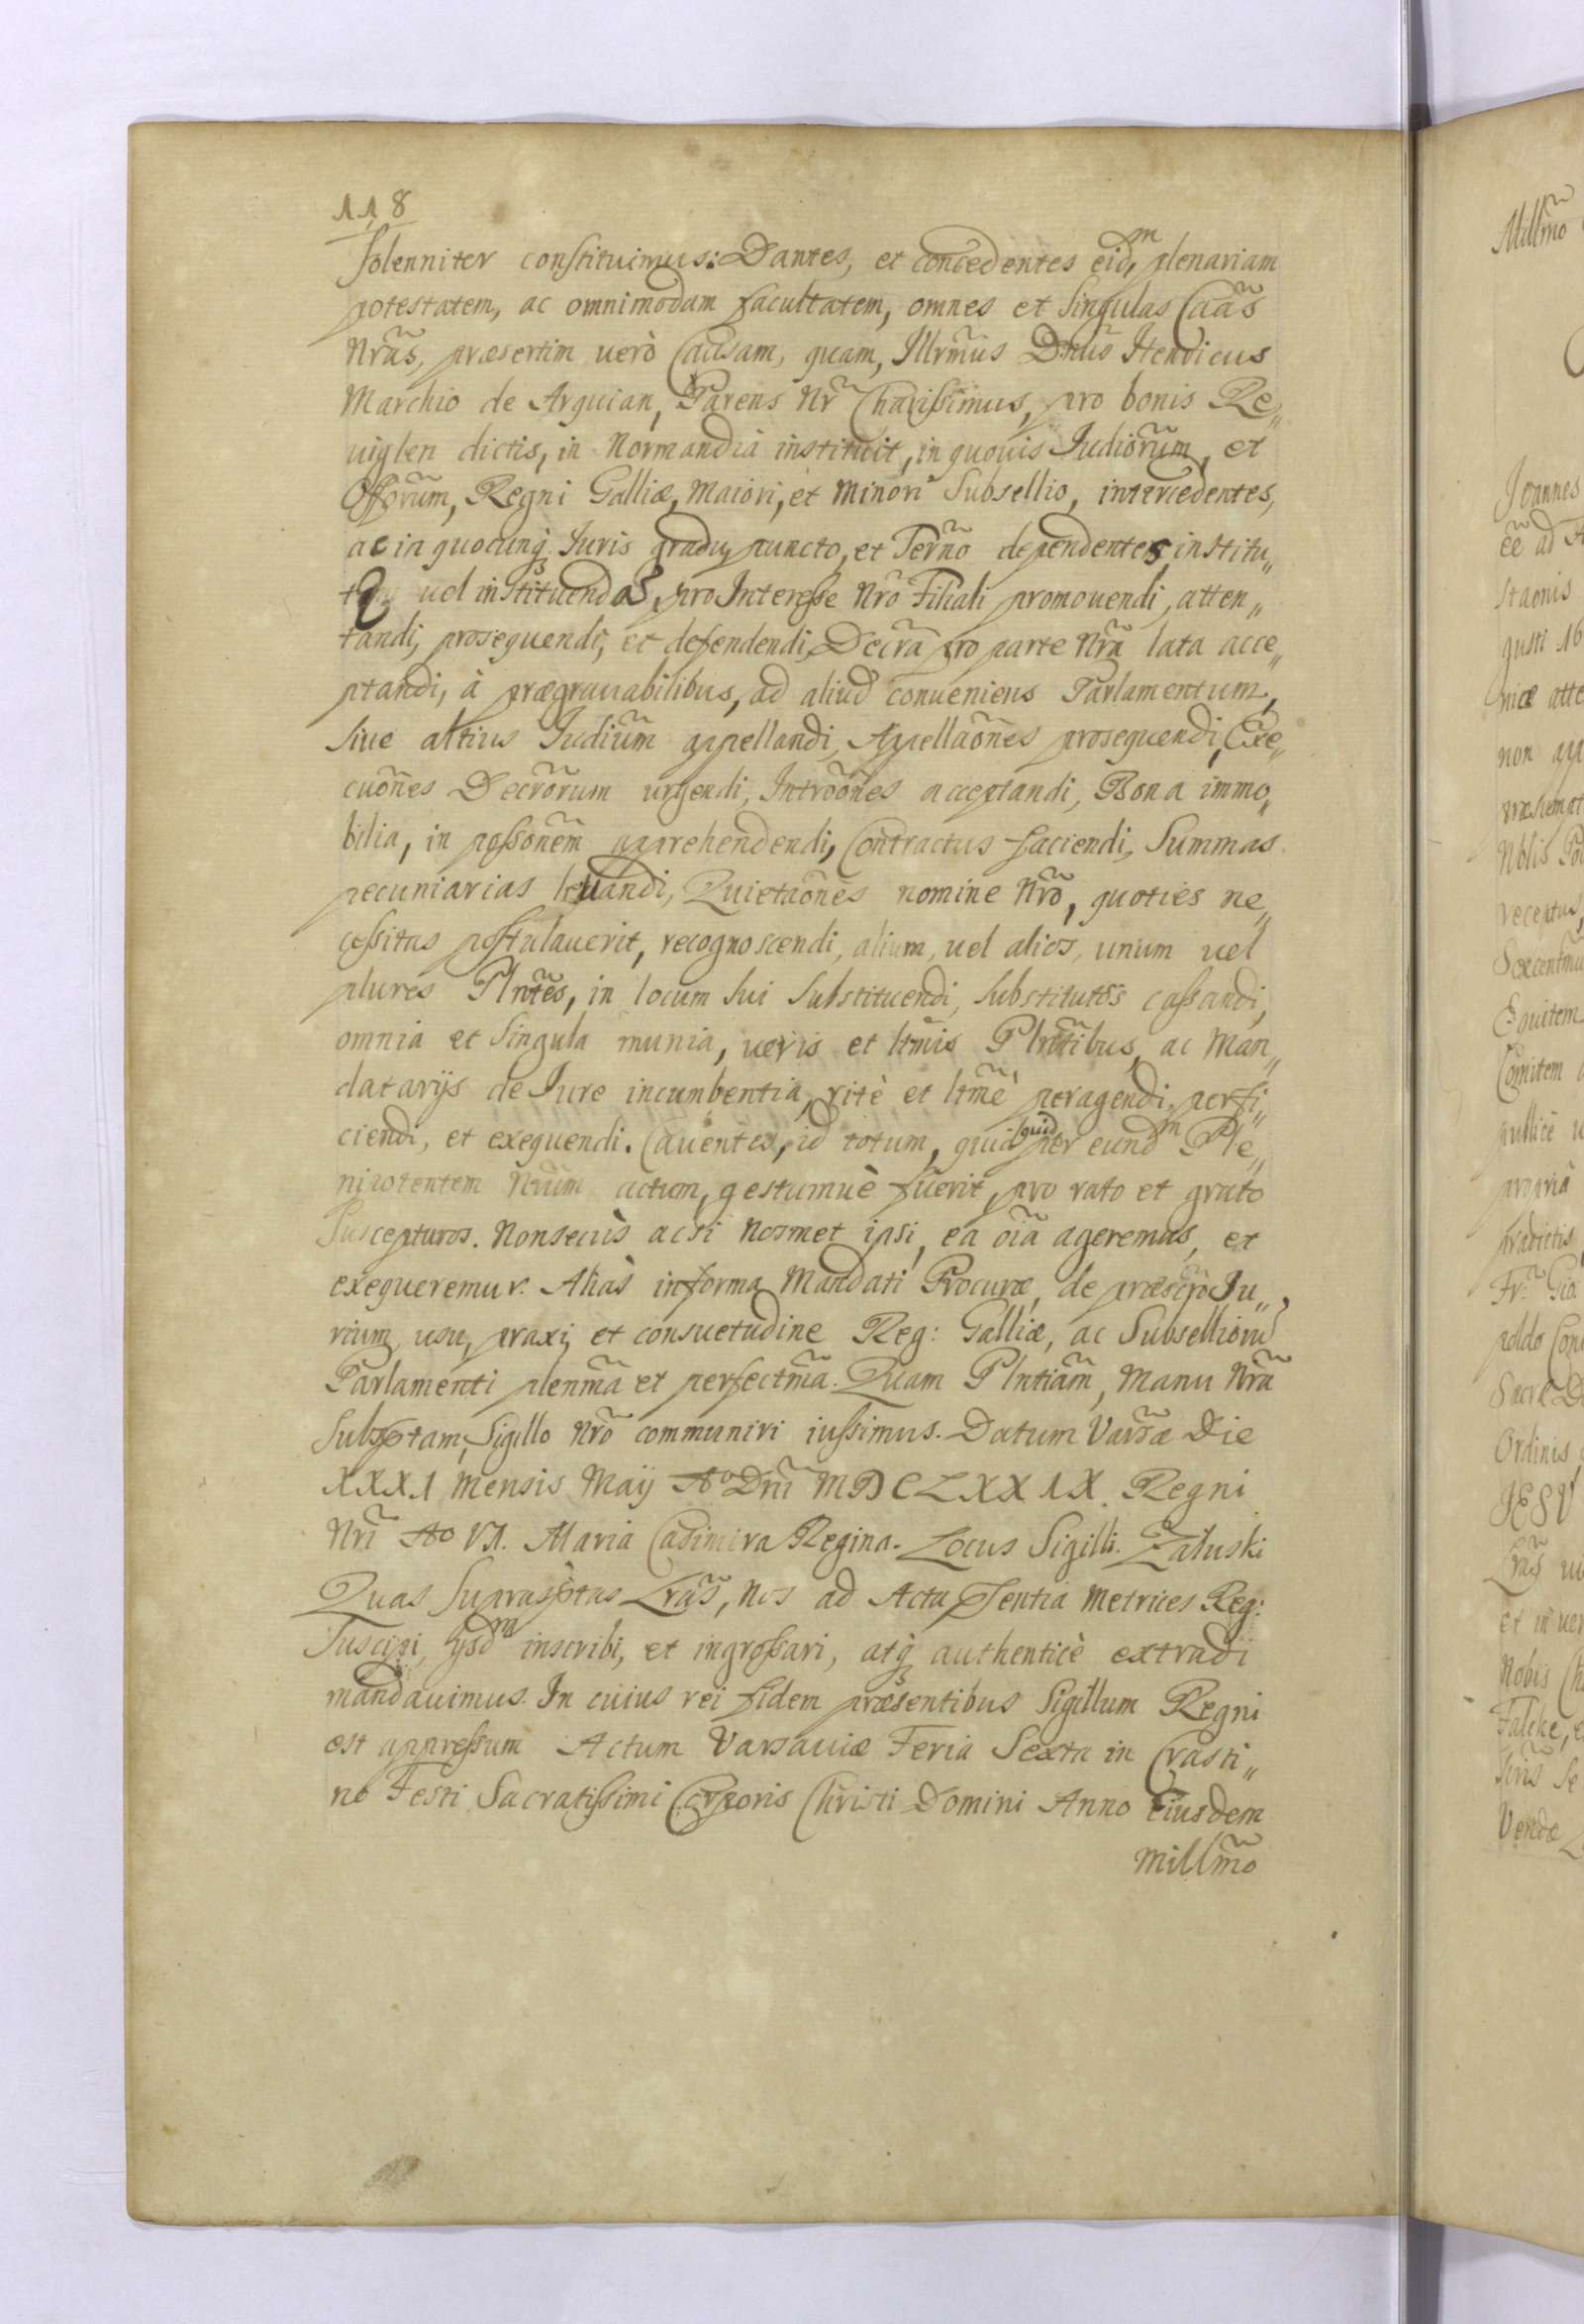 118
Solenniter constituimus: Dantes, et concedentes eidm plenariam
potestatem, ac omnimodam facultatem, omnes et Singulas Caas̃
Nrãs, præsertim uerò Causam, quam, Illrm̃us Dnũs Henricus
Marchio de Arquian, Parens Nr̃ Charissimus, pro bonis Re„
uiglen dictis, in Normandia instituit, in quouis Judiorũm, et
Offorũm, Regni Galliæ, Maiori, et Minori Subsellio, intercedentes,
ac in quocunq; Iuris gradu, puncto, et Ter̃no dependentes institu„
uel instituendas, pro Interesse Nrõ Filiali promouendi, atten„
tandi, prosequendi, et defendendi, Decrã pro parte Nrã lata acce„
ptandi, à prægrauabilibus, ad aliud conueniens Parlamentum,
siue altius Judiũm appellandi, Appellaõnes prosequendi, Exe„
cuõnes Decrõrum urgendi, Intrõones acceptandi, Bona immo„
bilia, in possonẽm apprehendendi, Contractus faciendi, Summas
pecuniarias leuandi, Quietaõnes nomine Nrõ, quoties ne„
cessitas postulauerit, recognoscendi, alium, uel alios, unum uel
plures Plntẽs, in locum sui Substituendi, Substitutos cassandi,
omnia et Singula munia, ueris et ltm̃is Plntĩbus, ac Man„
datarijs de Iure incumbentia, ritè et ltm̃è peragendi, perfi„
ciendi, et exequendi. Cauentes, id totum, quidquid per eundm Ple„
nipotentem Nrũm actum, gestumuè fuerit, pro rato et grato
Suscepturos. Nonsecùs acsi Nosmet ipsi, ea oĩa ageremus, et
exequeremur. Aliàs in forma Mandati Procuræ, de præscrp̃o Iu„
rium, usu, praxi, et consuetudine Reg: Galliæ, ac Subselliorũ
Parlamenti plenm̃a et perfectm̃a. Quam Plntiãm, Manu Nrã
Subsptam, Sigillo Nrõ communiri iussimus. Datum Varsæ̃ Die
XXXI Mensis Maij Ao Dnĩ MDCLXXIX. Regni
Nrĩ Ao VI. Maria Casimira Regina. Locus Sigilli. Załuski
Quas Suprasptas Lrãs, Nos ad Acta Psentia Metrices Reg:
Suscipi, ijsdm inscribi, et ingrossari, atq; authenticè extradi
mandauimus. In cuius rei fidem præsentibus Sigillum Regni
est appressum. Actum Varsauiæ Feria Sexta in Crasti„
no Festi Sacratissimi Corporis Christi Domini Anno Eiusdem
Millm̃o